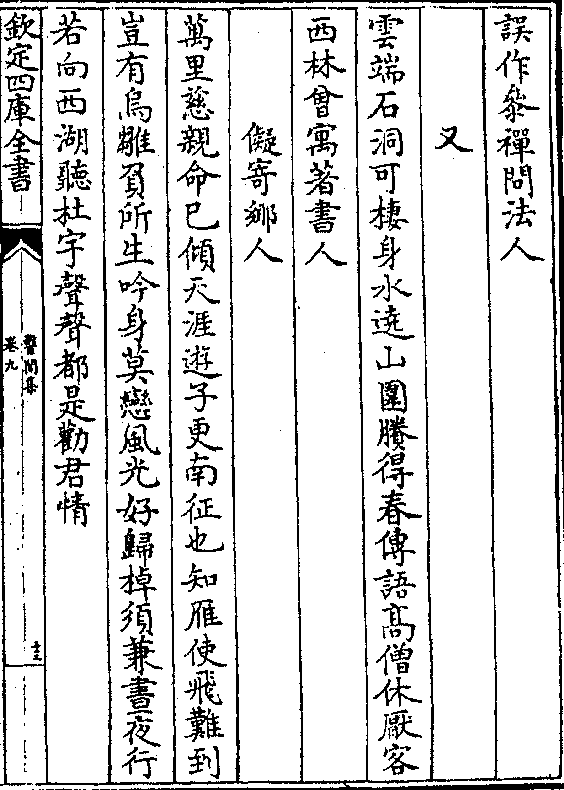 誤作叅禪問法人
又
雲端石洞可棲身水遶山圍賸得春傳語高僧休厭客
西林曾寓著書人
儗寄鄉人
萬里慈親命已傾天涯遊子更南征也知雁使飛難到
豈有烏雛負所生吟身莫戀風光好歸棹須兼晝夜行
若向西湖聽杜宇聲聲都是勸君情
欽定四庫全書
卷九
十三